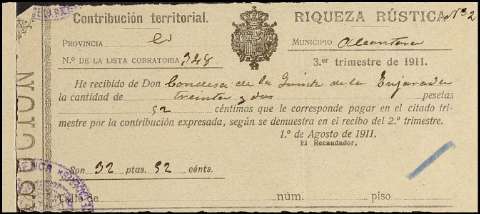 Contribución territorial.
RIQUEZA RÚSTICA Nº 2
PROVINCIA
MUNICIPIO Alcantara
N.º DE LA LISTA COBRATORIA 348
3.er trimestre de 1911.
He recibido de Don Condesa de la de la Enjarada
la cantidad de treinta y dos pesetas
52 céntimos que le corresponde pagar en el citado tri-
mestre por la contribución expresada, según se demuestra en el recibo del 2.º trimestre.
1.º de Agosto de 1911.
El Recaudador.
Son 32 ptas. 52 cénts.
Calle de núm. piso